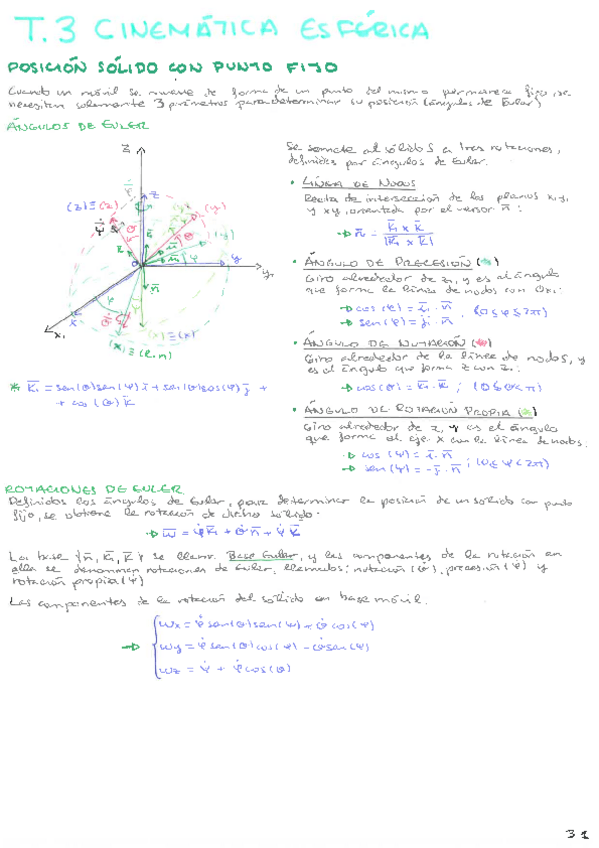 T.3 CINEMÁTICA ESFÉRICA
POSICIÓN SÓLIDO CON PUNTO FIJO
Cuando un móvil se mueve de forma de un punto del mismo permanece fijo, se
necesitan solamente 3 parámetros para determinar su posición (ángulos de Euler)
ÁNGULOS DE EULER
Se somete al sólido S a tres rotaciones,
definidas por ángulos de Euler.
• LÍNEA DE NODOS
Recta de intersección de los planos x₁y₁
y xy, orientada por el versor n̄:
→ n̄ = (k̄₁ × k̄) / |k̄₁ × k̄|
• ÁNGULO DE PRECESIÓN (*)
Giro alrededor de z₁, y es el ángulo
que forma la línea de nodos con Ox₁:
→ cos(φ) = ī₁ · n̄
→ sen(φ) = j̄₁ · n̄ , (0 ≤ φ ≤ 2π)
• ÁNGULO DE NUTACIÓN (*)
Giro alrededor de la línea de nodos, y
es el ángulo que forma z con z₁:
→ cos(θ) = k̄₁ · k̄ ; (0 ≤ θ < π)
• ÁNGULO DE ROTACIÓN PROPIA (*)
Giro alrededor de z, y es el ángulo
que forma el eje x con la línea de nodos:
→ cos(ψ) = ī · n̄
→ sen(ψ) = -j̄ · n̄ ; (0 ≤ ψ < 2π)
z₁
z
(z) ≡ (z)
(y)
(y)
y
y₁
x
x₁
(x) ≡ (l.n)
(x) ≡ (x)
* k̄₁ = sen(θ)sen(ψ) ī + sen(θ)cos(ψ) j̄ +
+ cos(θ) k̄
ROTACIONES DE EULER
Definidos los ángulos de Euler, para determinar la posición de un sólido con punto
fijo, se obtiene la rotación de dicho sólido:
→ ω̄ = φ̇ k̄₁ + θ̇ n̄ + ψ̇ k̄
La base {n̄, k̄₁, k̄} se llama Base Euler, y las componentes de la rotación en
ella se denominan rotaciones de Euler, llamadas: nutación (θ̇), precesión (φ̇) y
rotación propia (ψ̇)
Las componentes de la rotación del sólido en base móvil.
ωx = φ̇ sen(θ)sen(ψ) + θ̇ cos(ψ)
→ ωy = φ̇ sen(θ)cos(ψ) - θ̇ sen(ψ)
ωz = ψ̇ + φ̇ cos(θ)
31